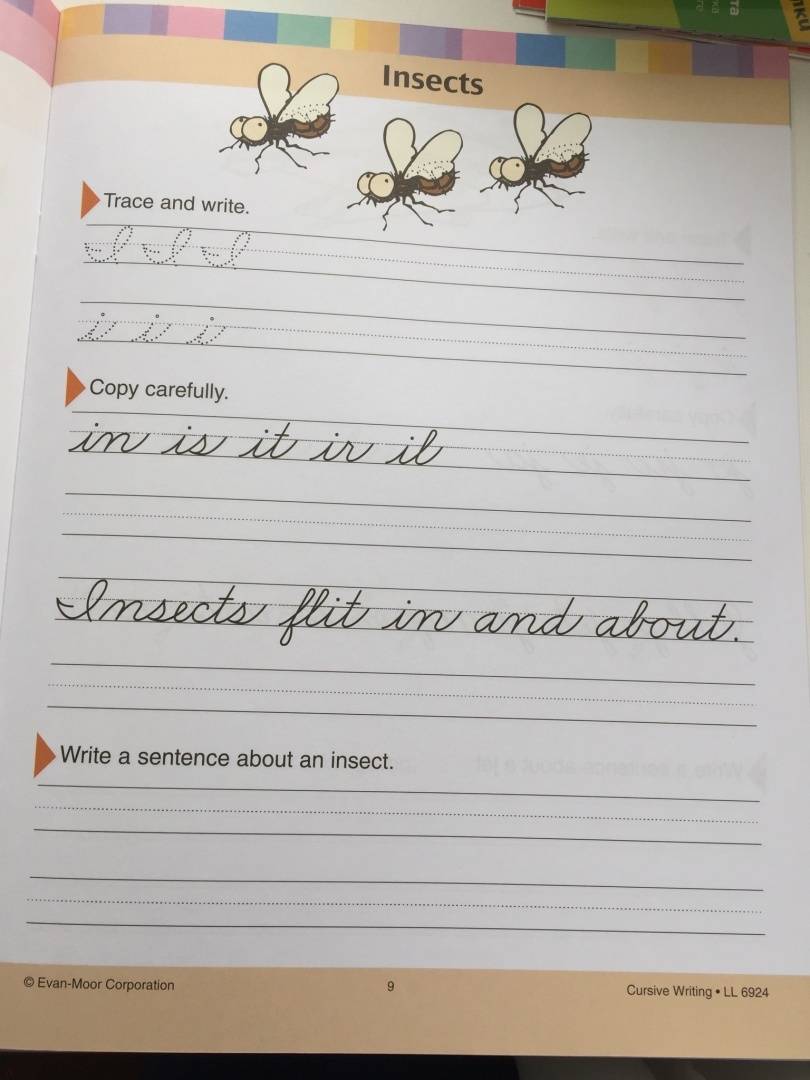 Insects
Trace and write.
I I I
i i i
Copy carefully.
in is it ir il
Insects flit in and about.
Write a sentence about an insect.
© Evan-Moor Corporation 9 Cursive Writing • LL 6924